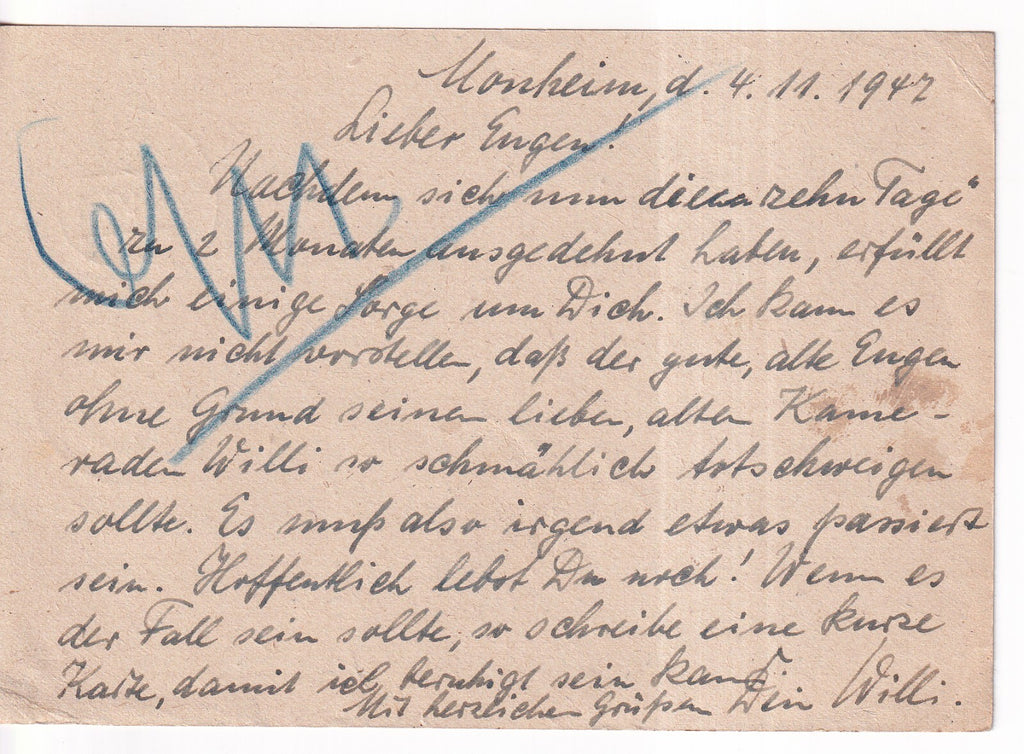 Monheim, d. 4. 11. 1947
Lieber Eugen!
Nachdem sich nun die ca zehn Tage"
zu 2 Monaten ausgedehnt haben, erfüllt
mich einige Sorge um Dich. Ich kann es
mir nicht vorstellen, daß der gute, alte Eugen
ohne Grund seinen lieben, alten Kame-
raden Willi so schmählich totschweigen
sollte. Es muß also irgend etwas passiert
sein. Hoffentlich lebst Du noch! Wenn es
der Fall sein sollte, so schreibe eine kurze
Karte, damit ich beruhigt sein kann.
Mit herzlichen Grüßen Dein Willi.